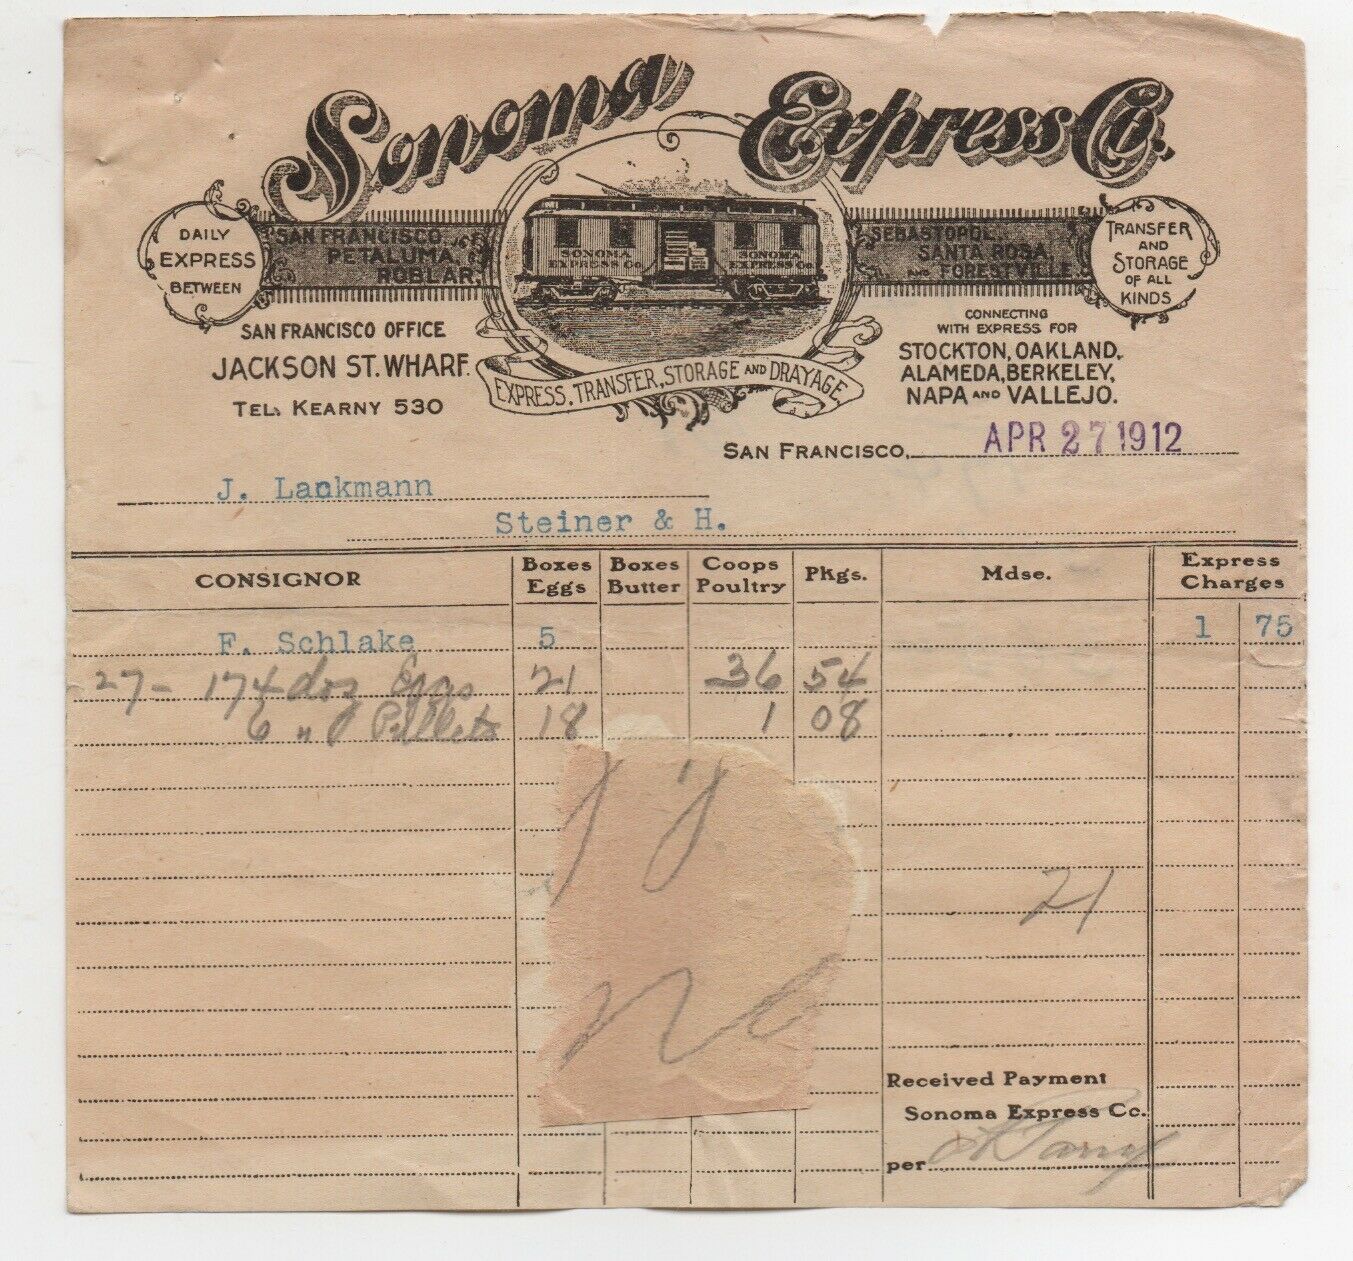 Sonoma Express Co.
DAILY EXPRESS BETWEEN
SAN FRANCISCO, PETALUMA, ROBLAR,
SONOMA EXPRESS Co. SONOMA EXPRESS Co.
SEBASTOPOL, SANTA ROSA, AND FORESTVILLE
TRANSFER AND STORAGE OF ALL KINDS
SAN FRANCISCO OFFICE
JACKSON ST. WHARF.
TEL. KEARNY 530
EXPRESS, TRANSFER, STORAGE AND DRAYAGE.
CONNECTING
WITH EXPRESS FOR
STOCKTON, OAKLAND,
ALAMEDA, BERKELEY,
NAPA AND VALLEJO.
SAN FRANCISCO, APR 27 1912
J. Lackmann
Steiner & H.
CONSIGNOR Boxes Eggs Boxes Butter Coops Poultry Pkgs. Mdse. Express Charges
F. Schlake 5 1 75
27- 174 doz Eggs 21 36 54
6 " Pullets 18 1 08
21
Received Payment
Sonoma Express Co.
per